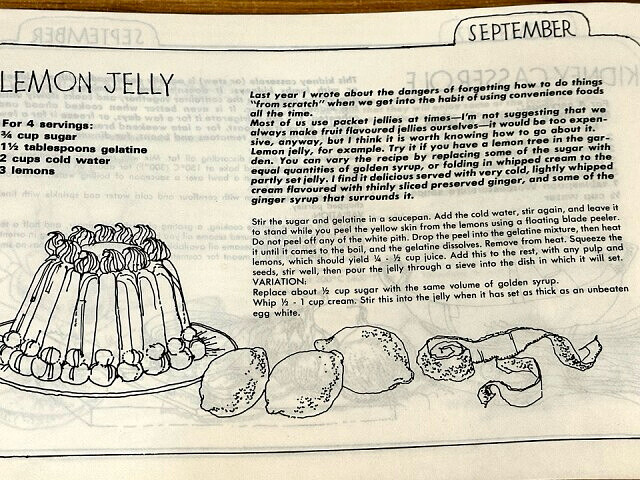 SEPTEMBER
LEMON JELLY
For 4 servings:
¾ cup sugar
1½ tablespoons gelatine
2 cups cold water
3 lemons
Last year I wrote about the dangers of forgetting how to do things
"from scratch" when we get into the habit of using convenience foods
all the time.
Most of us use packet jellies at times—I'm not suggesting that we
always make fruit flavoured jellies ourselves—it would be too expen-
sive, anyway, but I think it is worth knowing how to go about it.
Lemon jelly, for example. Try it if you have a lemon tree in the gar-
den. You can vary the recipe by replacing some of the sugar with
equal quantities of golden syrup, or folding in whipped cream to the
partly set jelly. I find it delicious served with very cold, lightly whipped
cream flavoured with thinly sliced preserved ginger, and some of the
ginger syrup that surrounds it.
Stir the sugar and gelatine in a saucepan. Add the cold water, stir again, and leave it
to stand while you peel the yellow skin from the lemons using a floating blade peeler.
Do not peel off any of the white pith. Drop the peel into the gelatine mixture, then heat
it until it comes to the boil, and the gelatine dissolves. Remove from heat. Squeeze the
lemons, which should yield ¼ - ½ cup juice. Add this to the rest, with any pulp and
seeds, stir well, then pour the jelly through a sieve into the dish in which it will set.
VARIATION:
Replace about ½ cup sugar with the same volume of golden syrup.
Whip ½ - 1 cup cream. Stir this into the jelly when it has set as thick as an unbeaten
egg white.